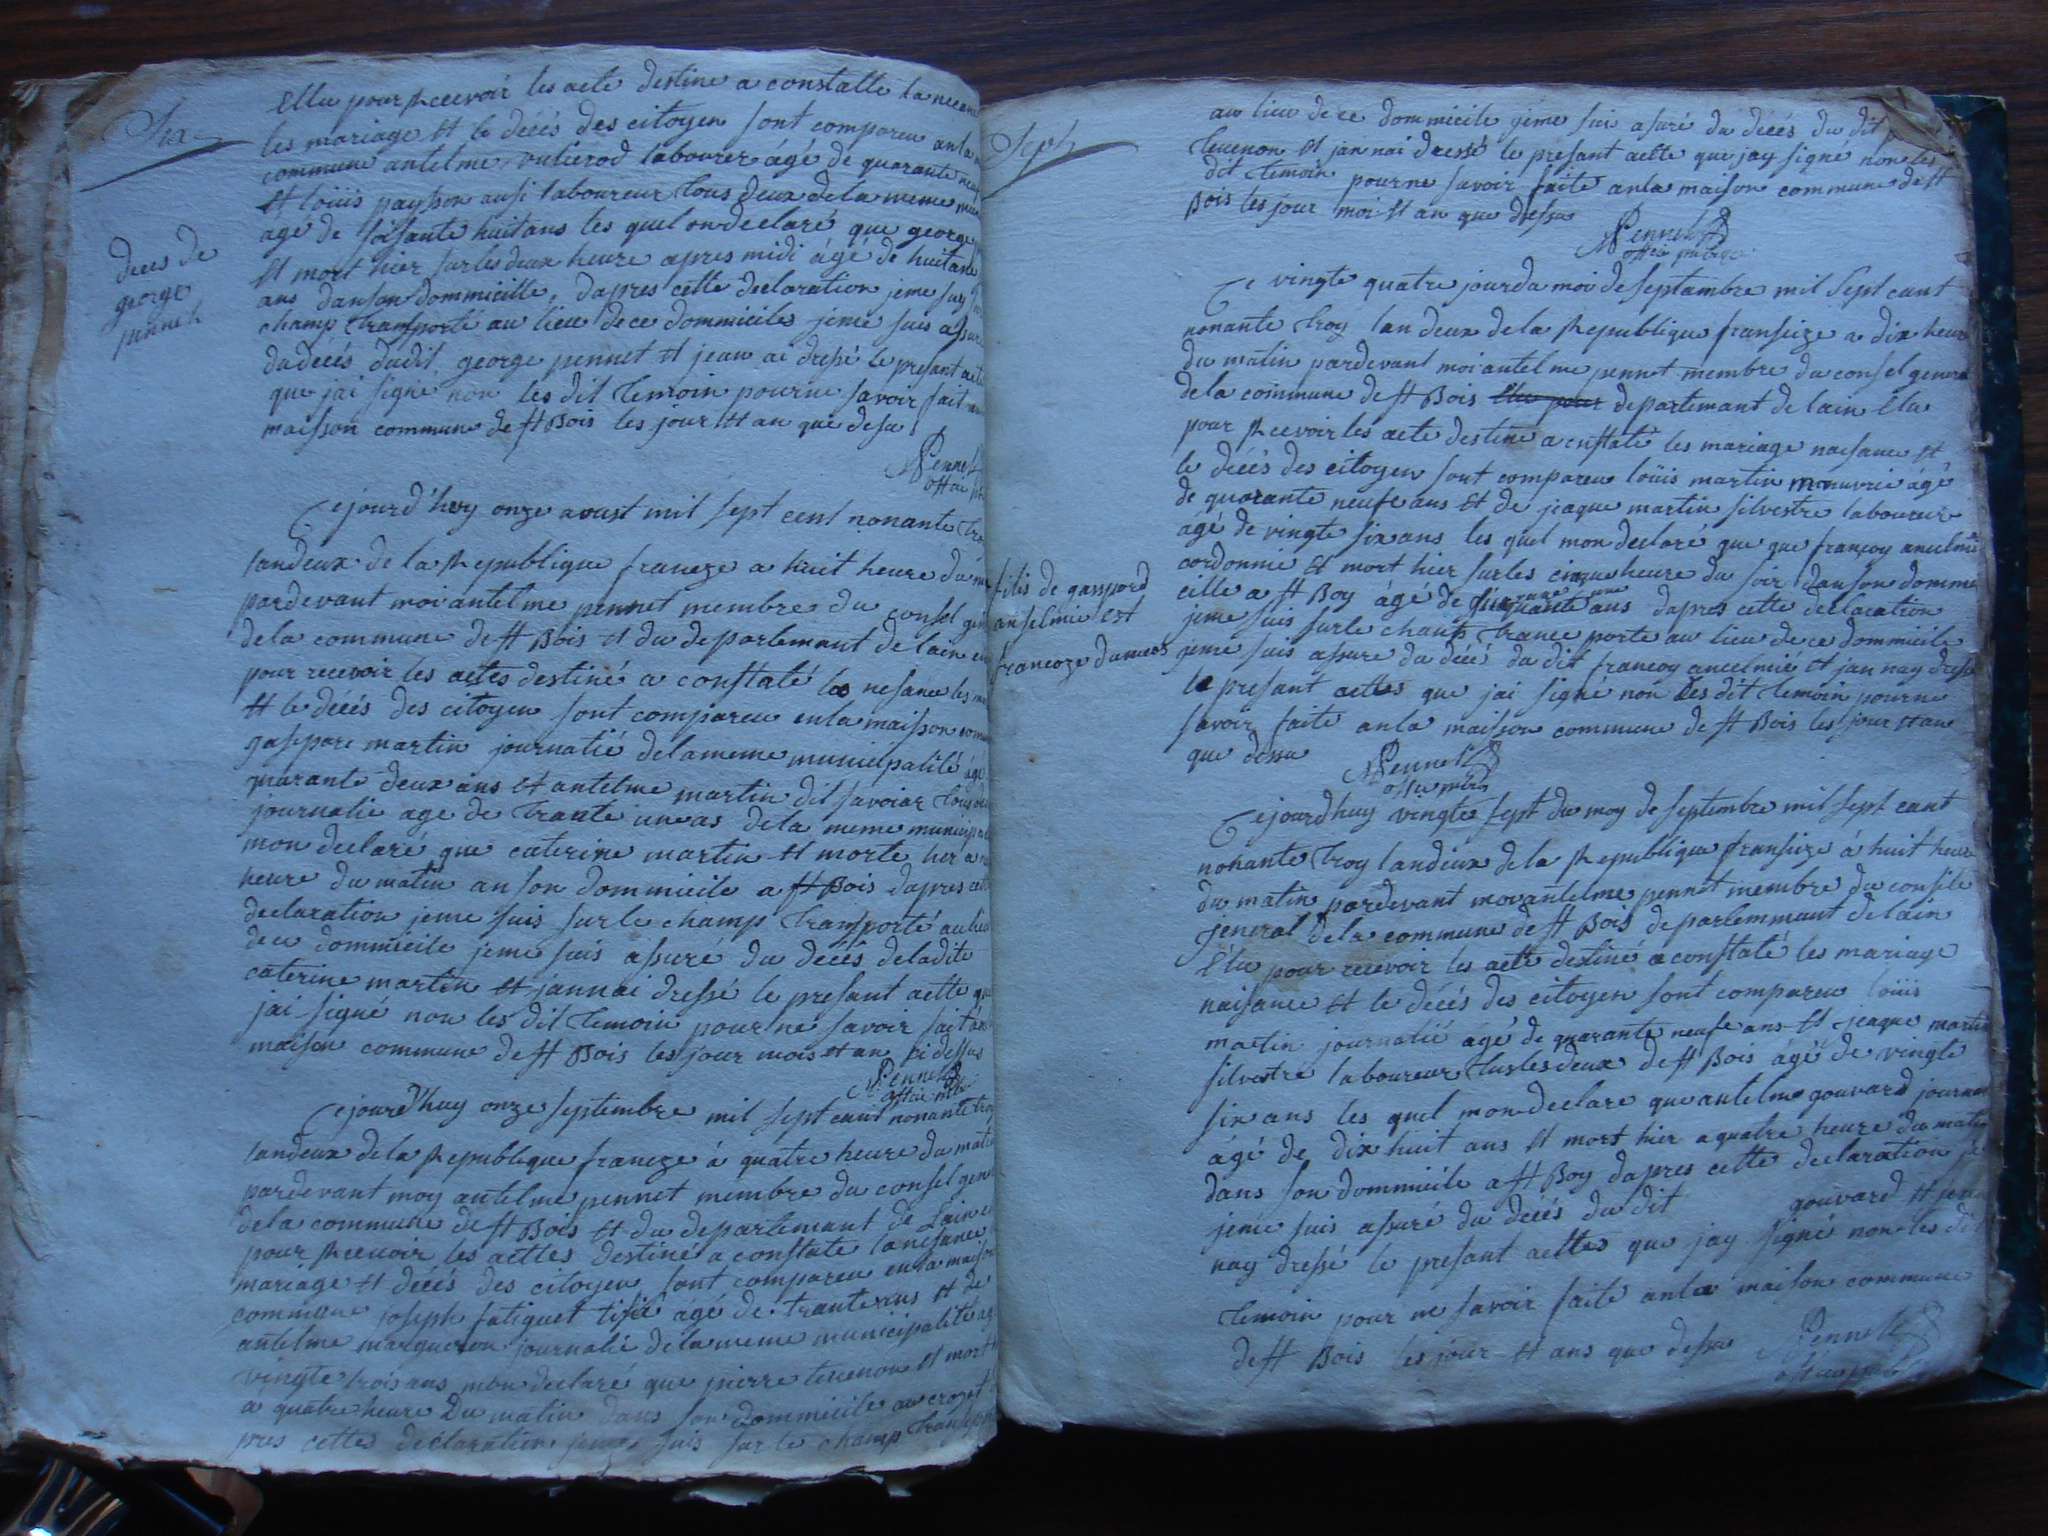 Six
Ellu pour Recevoir les acte destine a constatte la
les mariage et le décés des citoyen sont compareu anla
commune antelme labourer ágé de quarante
et loüis paysson ausi laboureur tous deux dela meme
agé de soisante huit ans les quel on declaré que george
et mort hier sur les deux heure apres midi ágé de huitante
ans danson dommicille, dapres cette declaration jeme suis
champ transporté au lieu de ce dommiciles jeme suis assuré
du décés dudit george pennet et jean ai dressé le presant acte
que jai signe non les dit temoin pour ne savoir fait
maisson commune de st Bois les jour et an que desu
dece de
george
pennet
Pennet
offici
Cejourd'huy onze aoust mil sept cent nonante troy
landeux de la Republique francze a huit heure du
pardevant moi antelme pennet membre du consel
dela commune de st Bois et du departemant de lain
pour recevoir les actes destiné a constaté les nesance les
et le décés des citoyen sont compareu enla maisson
gaspare martin journalié dela meme municipalité ágé
quarante deux ans et antelme martin dit savoiar tous
journalie age de trante un as dela meme
mon declaré que caterine martin et morte hier a
heure du matin an son dommicile a st Bois dapres cette
declaration jeme suis sur le champ transporté au lieu
de ce dommicile jeme suis assuré du decés deladite
caterine martin et jannai dressé le presant actte que
jai signé non les dit temoin pour ne savoir fait
maison commune de st Bois les jour mois et an ci dessus
Pennet
offici
Cejourd'huy onze septembre mil sept cant nonante troy
landeux dela Republique francze á quatre heure du matin
pardevant moy antelme pennet membre du consel gen
dela commune de st Bois et du departemant de Lain
pour Recevoir les acttes destiné a constate la nesance
mariage et decés des citoyen sont compareu enla maison
commune joseph fatiguet agé de et de
antelme margueron journalié dela meme municipalité
vingte trois ans mon declaré que pierre tevenon et mort
a quatre heure Du matin dans son dommicile au crozet
pres cettes declaration jeme suis sur le champ
Sept
au lieu de ce dommicile jeme suis asuré du décés du dit
tevenon et jan nai dressé le presant actte que jay signé non les
dit temoin pour ne savoir faite anla maison commune de st
Bois les jour moi et an que dessu
Pennet
offici public
Ce vingte quatre jour du moi de septambre mil sept cant
nonante troy lan deux de la Republique fransieze a dix heure
du matin pardevant moi antelme pennet membre du consel general
dela commune de st Bois Elu pour departemant de lain Elu
pour Recevoir les acte destiné a enstaté les mariage naisance et
le décés des citoyen sont compareu loüis martin manuvrié ágé
de quarante neufe ans et de jcaque martin silvestre laboureur
agé de vingte six ans les quel mon declaré que que françoy anselmié
cordonnié et mort hier sur les cinque heure du soir danson dommi
cille a st Boy ágé de ans dapres cette declaration
jeme suis sur le champs trance porte au lieu de ce dommicile
jeme suis assure du décé du dit francoy ancelmié et jan nay dressé
le presant acttes que jai signé non les dit temoin pour ne
savoir faite anla maisson commune de st Bois les jour et an
que dessu
filis de gasspard
anselmie est
francoze dumas
Pennet
Cejourdhuy vingte sept du moy de septembre mil sept cant
nonante troy landeux dela Republique fransieze á huit heure
du matin pardevant moi antelme pennet membre du consile
jeneral dela commune de st Bois departemmant de lain
Elu pour recevoir les acte destiné a constaté les mariage
naisance et le décés des citoyen sont compareu loüis
martin journalié ágé de quarante neufe ans et jcaque martin
silvestre laboureur tus les deux de st Bois ágé de vingte
six ans les quel mon declare que antelme gouvard
ágé de dix huit ans et mort hier a quatre heure du matin
dans son dommicile a st Boy dapres cette declaration je
jeme suis assuré du decés du dit gouvard et jen
nay dressé le presant acttes que jay signé non les dit
temoin pour ne savoir faite anla maison commune
de st Bois les jour et ans que dessu
Pennet